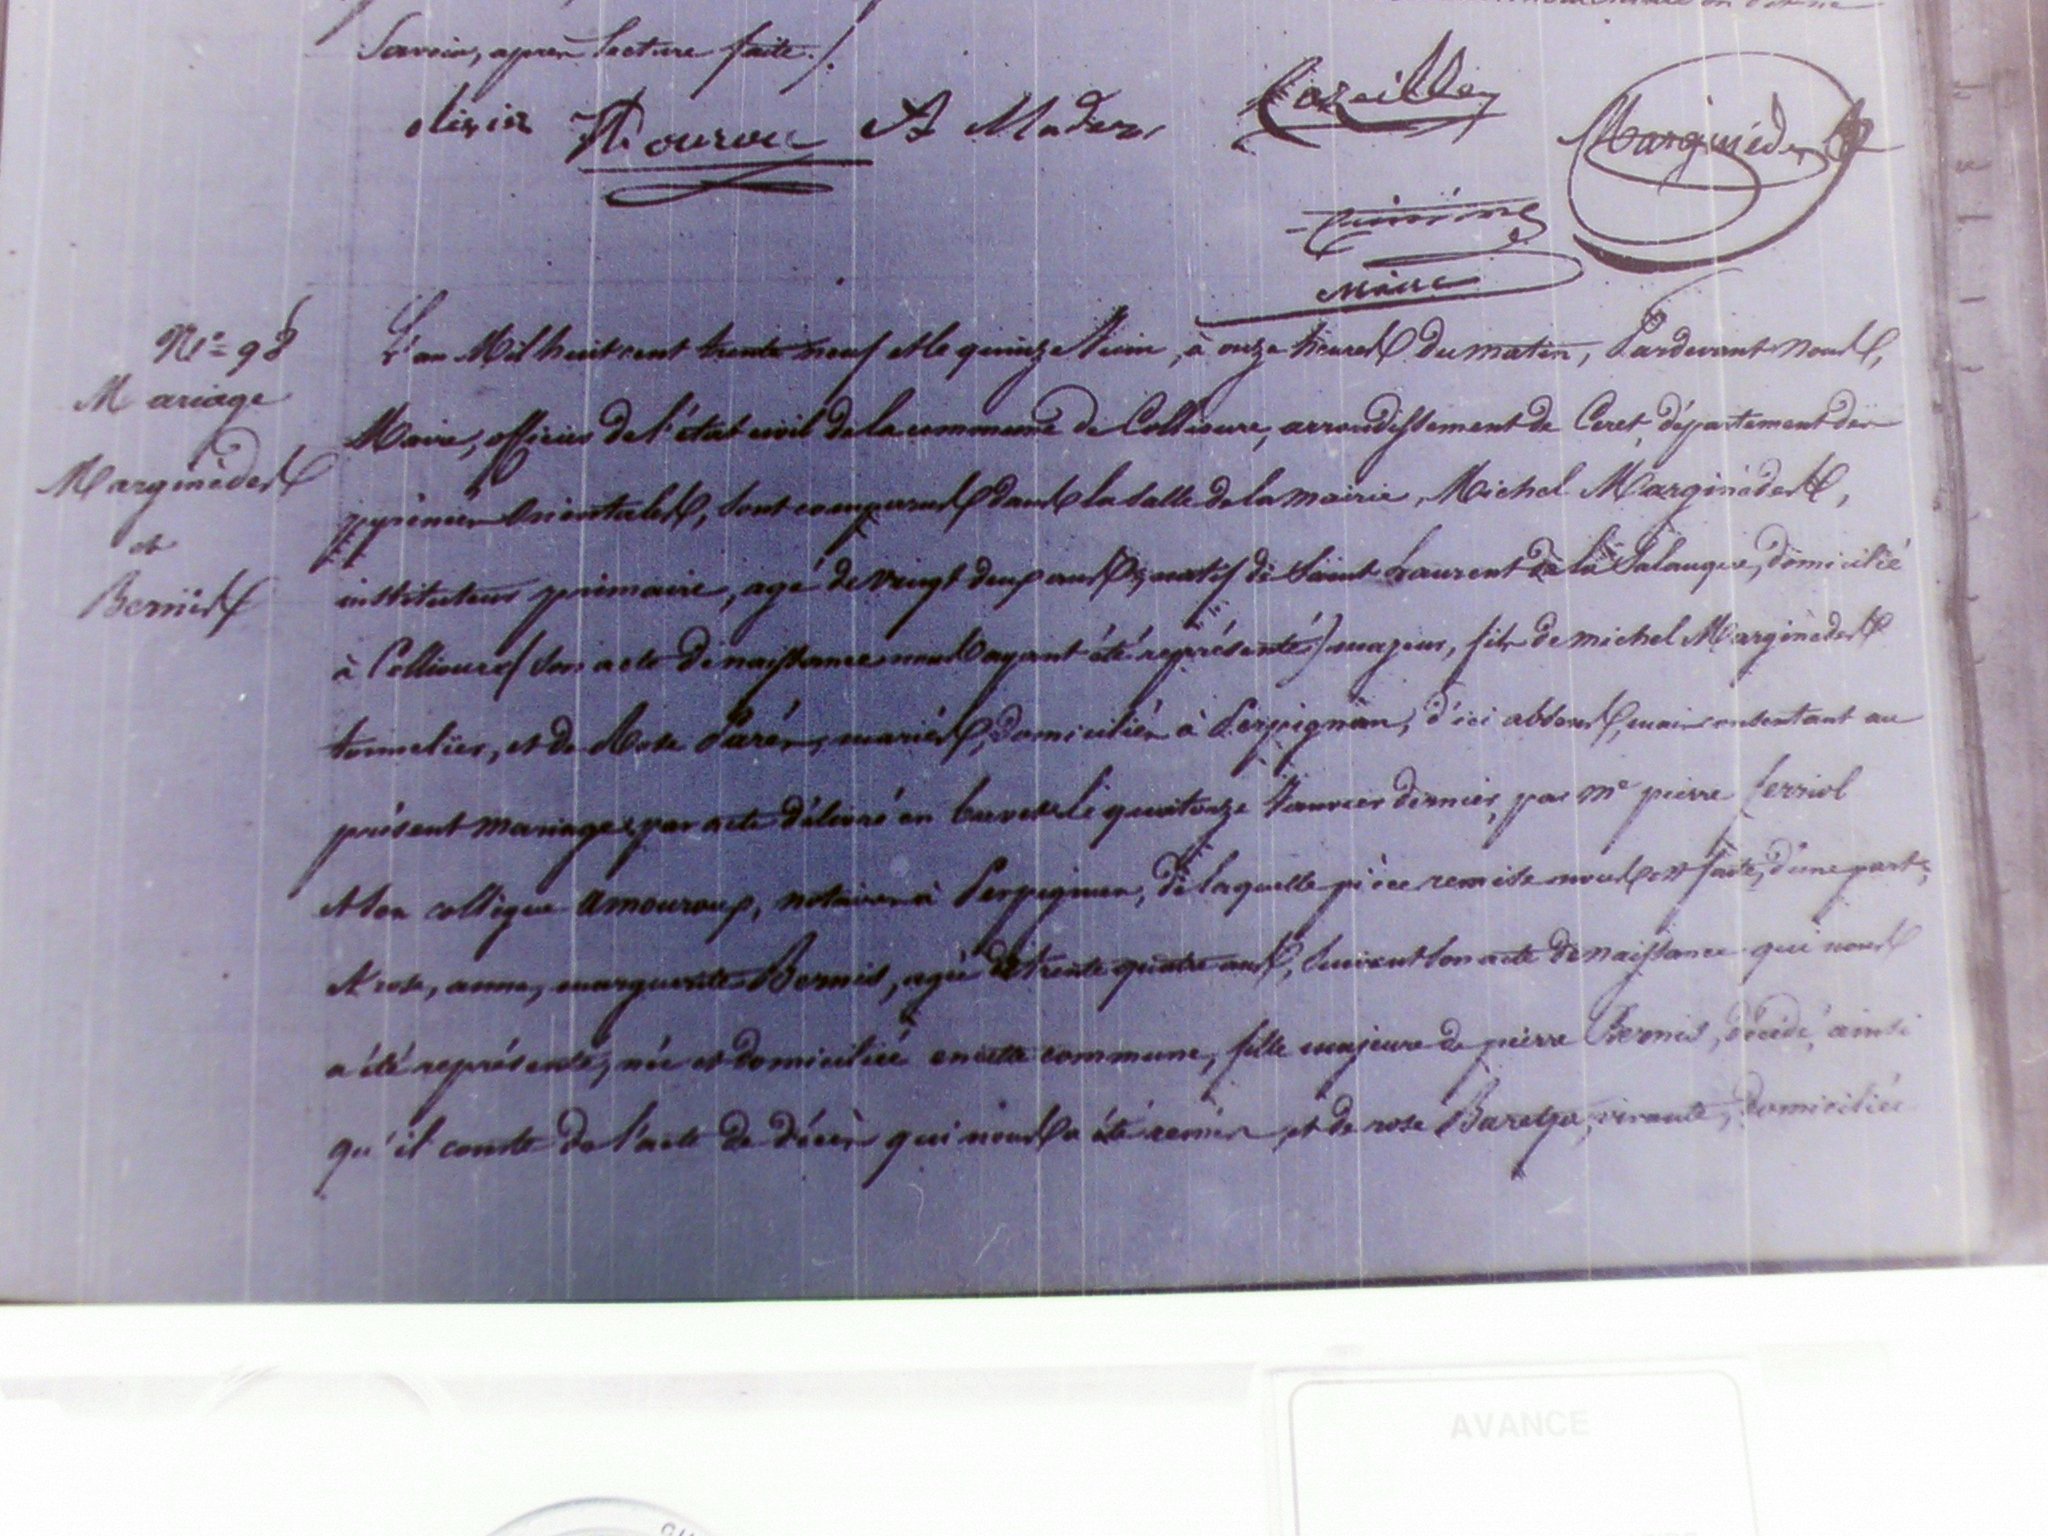 Savoir, après lecture faite./.
olivier Th. ourou A Maders Cazeilles Marginédes
maire
N° 98
Mariage
Marginèdes
et
Bernis
L'an Mil huit cent trente neuf et le quinze Juin, à onze heures du matin, Pardevant nous,
Maire, officier de l'état civil de la commune de Collioure, arrondissement de Ceret, département des
pyrénées Orientales, sont comparus dans la salle de la mairie, Michel Marginèdes,
instituteur primaire, agé de vingt deux ans, natif de Saint Laurent de la Salanque, domicilié
à Collioure (son acte de naissance nous ayant été représenté) majeur, fils de michel Marginèdes
tonnelier, et de Rose Parés, mariés, domiciliés à Perpignan, d'ici absens, mais consentant au
présent mariage par acte délivré en brevet le quatorze Janvier dernier, par me pierre ferriol
et son collègue amouroux, notaires à Perpignan, de laquelle pièce remise nous est faite, d'une part;
et rose, anne, marguerite Bernis, agée de trente quatre ans, suivant son acte de naissance qui nous
a été représenté, née et domiciliée en cette commune, fille majeure de pierre Bernis, décédé, ainsi
qu'il conste de l'acte de décès qui nous a été remis, et de rose Baretja, vivante, domiciliée
AVANCE